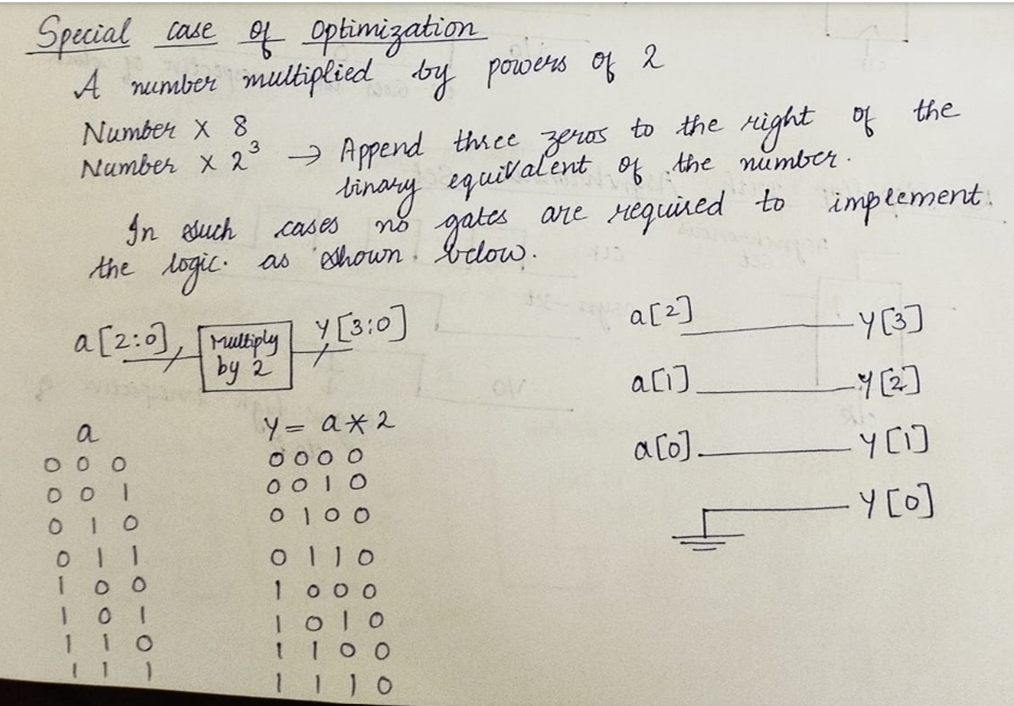 Special case of Optimization
A number multiplied by powers of 2
Number X 8
Number X 2³ → Append three zeros to the right of the
binary equivalent of the number.
In such cases no gates are required to implement
the logic. as shown below.
a[2:0] Multiply by 2 Y[3:0]
a Y = a * 2
0 0 0 0 0 0 0
0 0 1 0 0 1 0
0 1 0 0 1 0 0
0 1 1 0 1 1 0
1 0 0 1 0 0 0
1 0 1 1 0 1 0
1 1 0 1 1 0 0
1 1 1 1 1 1 0
a[2] Y[3]
a[1] Y[2]
a[0] Y[1]
Y[0]